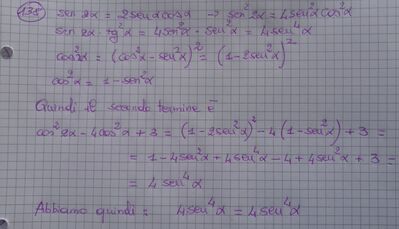 138
sen 2α = 2senα cosα → sen²2α = 4sen²α cos²α
sen 2α tg²α = 4sen²α · sen²α = 4sen⁴α
cos²2α = (cos²α - sen²α)² = (1 - 2sen²α)²
cos²α = 1 - sen²α
Quindi il secondo termine è
cos²2α - 4cos²α + 3 = (1 - 2sen²α)² - 4(1 - sen²α) + 3 =
= 1 - 4sen²α + 4sen⁴α - 4 + 4sen²α + 3 =
= 4sen⁴α
Abbiamo quindi : 4sen⁴α = 4sen⁴α